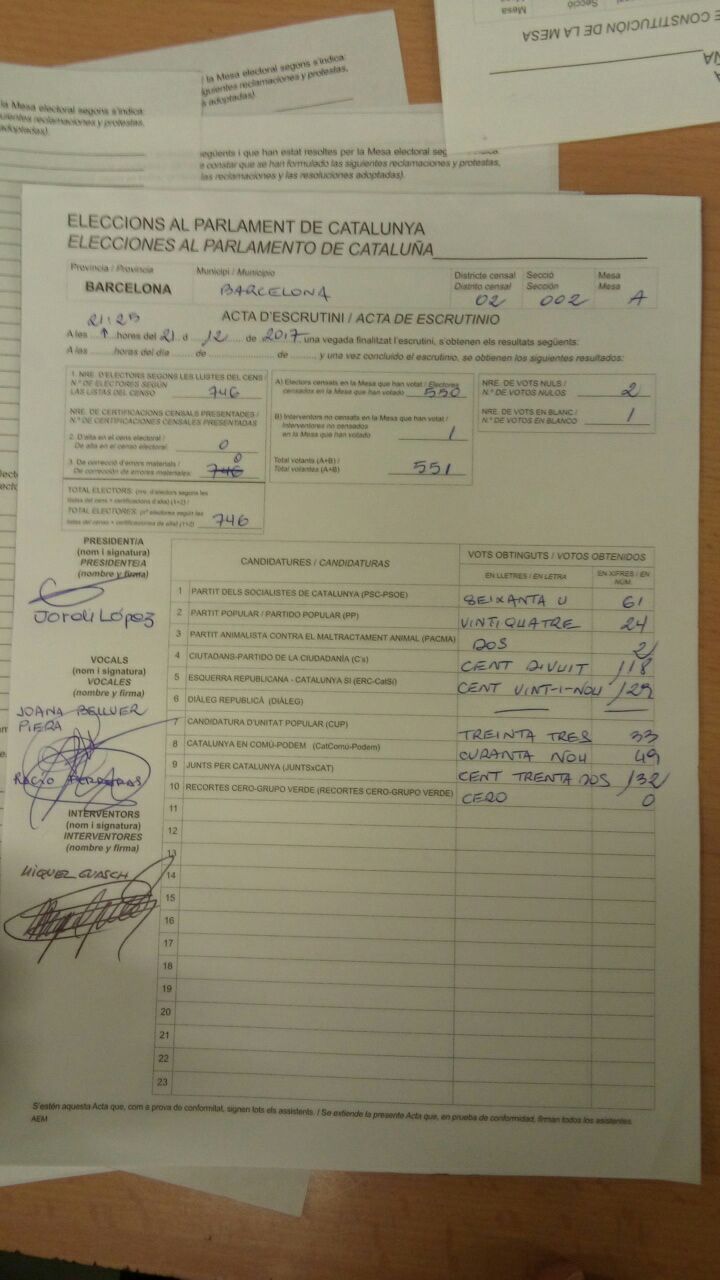 la Mesa electoral segons s'indica:
güents reclamaciones y protestas,
s adoptadas).
la Mesa electoral segons s'indica:
uientes reclamaciones y protestas,
adoptadas).
E CONSTITUCIÓN DE LA MESA
Mesa
Secció
següents i que han estat resoltes per la Mesa electoral seg
e constar que se han formulado las siguientes reclamaciones y protestas,
las reclamaciones y las resoluciones adoptadas).
ELECCIONS AL PARLAMENT DE CATALUNYA
ELECCIONES AL PARLAMENTO DE CATALUÑA
Província / Provincia Municipi / Municipio Districte censal Secció Mesa
Distrito censal Sección Mesa
BARCELONA BARCELONA 02 002 A
ACTA D'ESCRUTINI / ACTA DE ESCRUTINIO
21:25
A les hores del 21 d 12 de 2017 una vegada finalitzat l'escrutini, s'obtenen els resultats següents:
A las horas del día de de y una vez concluido el escrutinio, se obtienen los siguientes resultados:
1. NRE. D'ELECTORS SEGONS LES LLISTES DEL CENS /
N.º DE ELECTORES SEGÚN
LAS LISTAS DEL CENSO 746
NRE. DE CERTIFICACIONS CENSALS PRESENTADES /
N.º DE CERTIFICACIONES CENSALES PRESENTADAS
2. D'alta en el cens electoral /
De alta en el censo electoral: 0
3. De correcció d'errors materials / 0
De corrección de errores materiales: 746
TOTAL ELECTORS: (nre. d'electors segons les
llistes del cens + certificacions d'alta) (1+2) /
TOTAL ELECTORES: (nº electores según las
listas del censo + certificaciones de alta) (1+2) 746
A) Electors censats en la Mesa que han votat / Electores
censados en la Mesa que han votado 550
B) Interventors no censats en la Mesa que han votat /
Interventores no censados
en la Mesa que han votado 1
Total votants (A+B) /
Total votantes (A+B) 551
NRE. DE VOTS NULS /
N.º DE VOTOS NULOS 2
NRE. DE VOTS EN BLANC /
N.º DE VOTOS EN BLANCO 1
PRESIDENT/A
(nom i signatura)
PRESIDENTE/A
(nombre y firma)
Jordi López
VOCALS
(nom i signatura)
VOCALES
(nombre y firma)
JOANA BELLVER
PIERA
ROCÍO
INTERVENTORS
(nom i signatura)
INTERVENTORES
(nombre y firma)
MIQUEL GUASCH
CANDIDATURES / CANDIDATURAS VOTS OBTINGUTS / VOTOS OBTENIDOS
EN LLETRES / EN LETRA EN XIFRES / EN NÚM.
1 PARTIT DELS SOCIALISTES DE CATALUNYA (PSC-PSOE) SEIXANTA U 61
2 PARTIT POPULAR / PARTIDO POPULAR (PP) VINTIQUATRE 24
3 PARTIT ANIMALISTA CONTRA EL MALTRACTAMENT ANIMAL (PACMA) DOS 2
4 CIUTADANS-PARTIDO DE LA CIUDADANÍA (C's) CENT DIVUIT 118
5 ESQUERRA REPUBLICANA - CATALUNYA SÍ (ERC-CatSí) CENT VINT-I-NOU 129
6 DIÀLEG REPUBLICÀ (DIÀLEG)
7 CANDIDATURA D'UNITAT POPULAR (CUP) TREINTA TRES 33
8 CATALUNYA EN COMÚ-PODEM (CatComú-Podem) QURANTA NOU 49
9 JUNTS PER CATALUNYA (JUNTSxCAT) CENT TRENTA DOS 132
10 RECORTES CERO-GRUPO VERDE (RECORTES CERO-GRUPO VERDE) CERO 0
11
12
13
14
15
16
17
18
19
20
21
22
23
S'estén aquesta Acta que, com a prova de conformitat, signen tots els assistents. / Se extiende la presente Acta que, en prueba de conformidad, firman todos los asistentes.
AEM